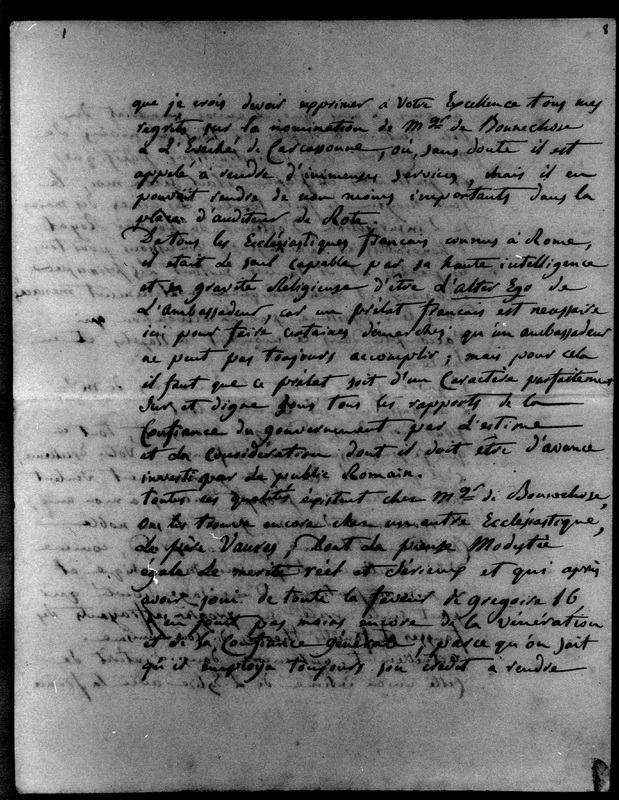 1
8
que je crois devoir exprimer à Votre Excellence tous mes
regrets sur la nomination de Mgr de Bonnechose
à L'Evéché de Carcassonne, où, sans doute il est
appelé à rendre d'immenses services, mais il en
pouvait rendre de non moins importants dans la
place d'auditeur de Rote.
De tous les Ecclésiastiques français connus à Rome,
il était le seul capable par sa haute intelligence
et sa gravité Réligieuse d'être L'alter Ego de
L'ambassadeur, car un prélat français est nécessaire
ici pour faire certaines démarches qu'un ambassadeur
ne peut pas toujours accomplir; mais pour cela
il faut que ce prélat soit d'un Caractère parfaitement
Sur et digne sous tous les rapports de la
Confiance du gouvernement par L'estime
et la considération dont il doit être d'avance
investi par le public Romain.
toutes ces qualités existent chez Mgr de Bonnechose,
on les trouve encore chez un autre Ecclésiastique,
Le père Vaures, Dont la pieuse Modestie
égale le merite réel et Sérieux et qui après
avoir joui de toute la faveur de gregoire 16
n'en jouit pas moins encore de la vénération
et de la Confiance générale, parce qu'on sait
qu'il employa toujours son crédit à rendre